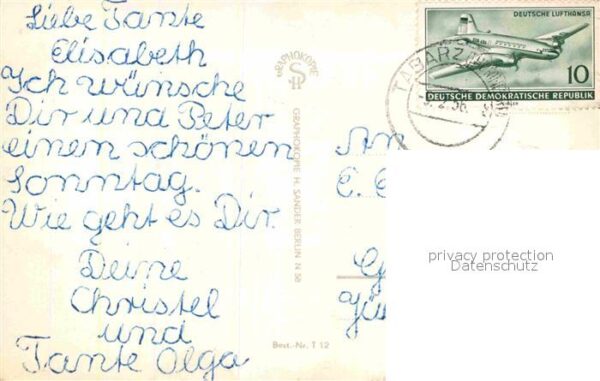 Liebe Tante
Elisabeth
Ich wünsche
Dir und Peter
einen schönen
Sonntag.
Wie geht es Dir.
Deine
Christel
und
Tante Olga
GRAPHOKOPIE
GRAPHOKOPIE H. SANDER BERLIN N 58
Best.-Nr. T 12
DEUTSCHE LUFTHANSA
10
DEUTSCHE DEMOKRATISCHE REPUBLIK
TABARZ
2.56
An
privacy protection
Datenschutz